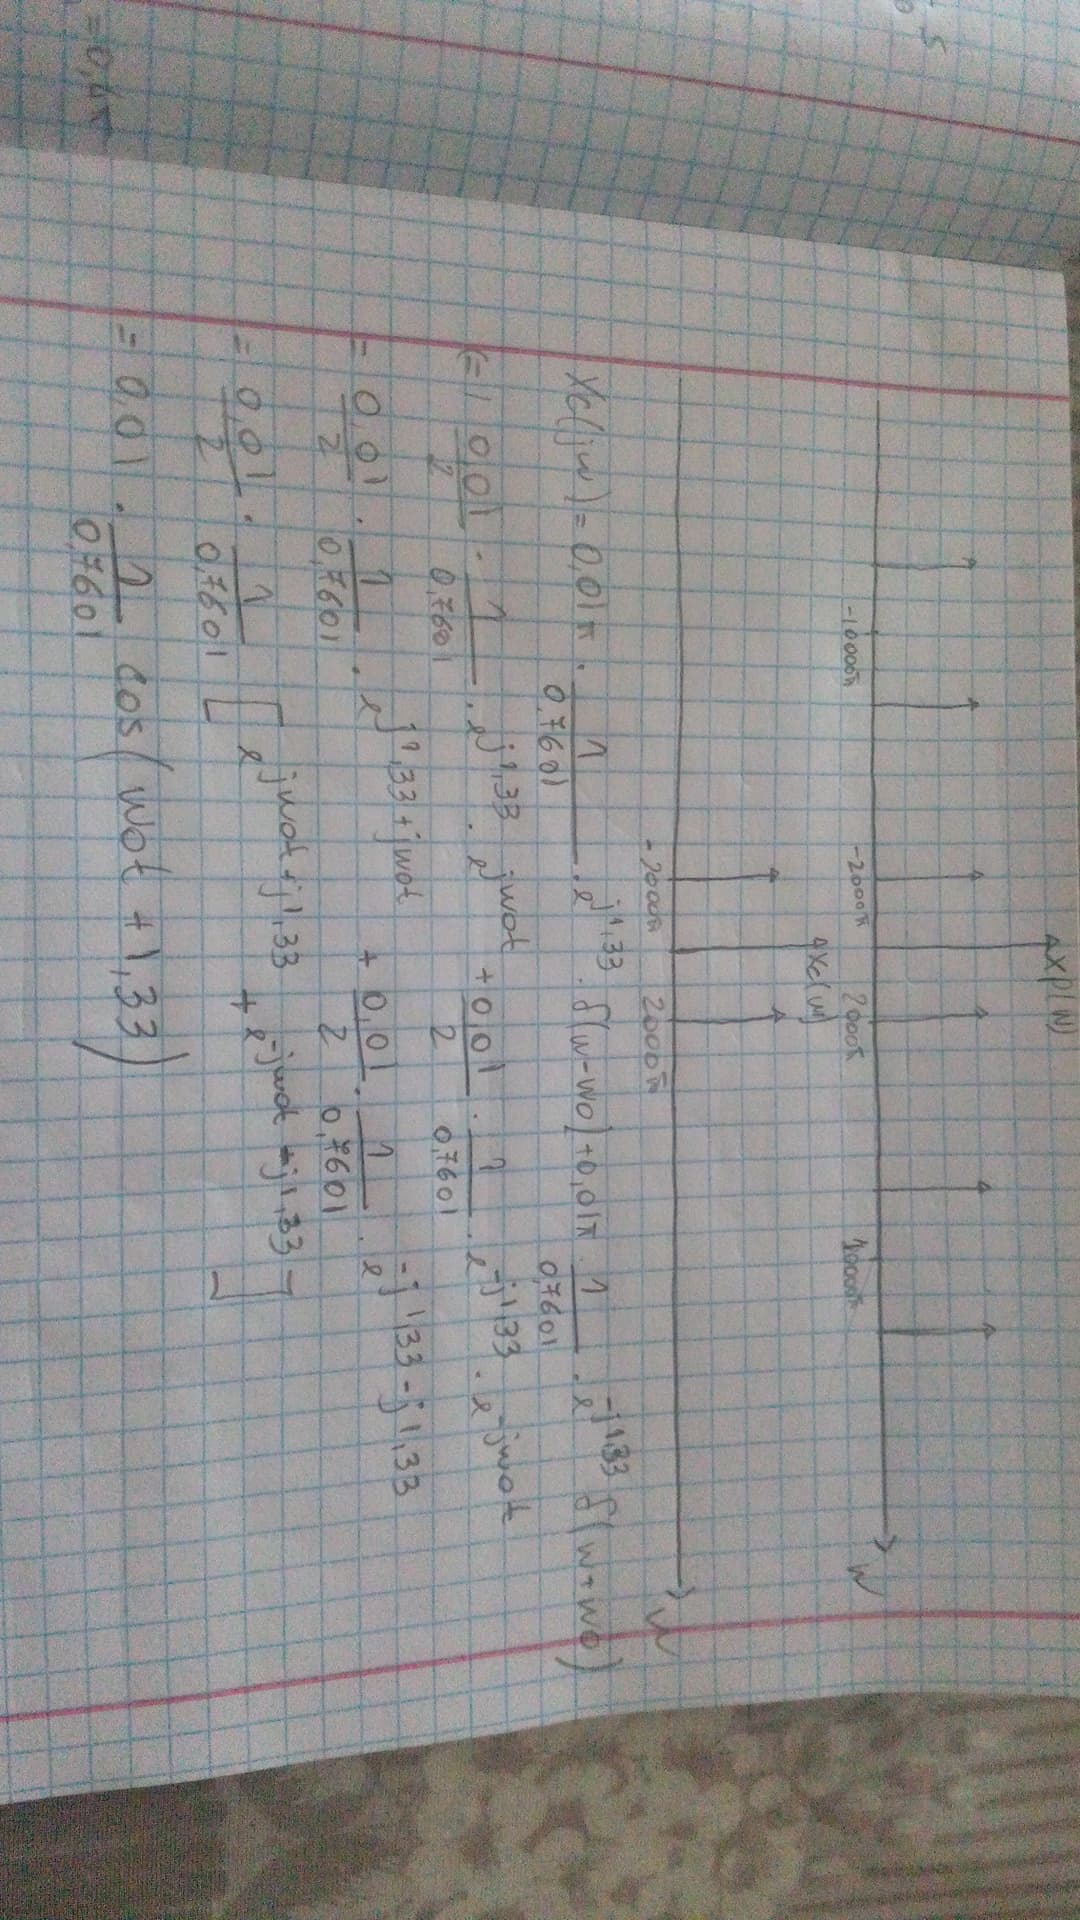 5
Xp(w)
-10000π -2000π 2000π 10000π w
Xc(w)
-2000π 2000π w
Xc(jw) = 0,01π · 1/0,7601 · e^j1,33 · δ(w-w0) + 0,01π · 1/0,7601 · e^-j1,33 δ(w+w0)
(=) 0,01/2 · 1/0,7601 · e^j1,33 · e^jw0t + 0,01/2 · 1/0,7601 · e^-j1,33 · e^-jw0t
= 0,01/2 · 1/0,7601 · e^j1,33+jw0t + 0,01/2 · 1/0,7601 · e^-j1,33-j1,33
= 0,01/2 · 1/0,7601 [e^jw0t+j1,33 + e^-jw0t-j1,33]
= 0,01 · 1/0,7601 cos(w0t + 1,33)